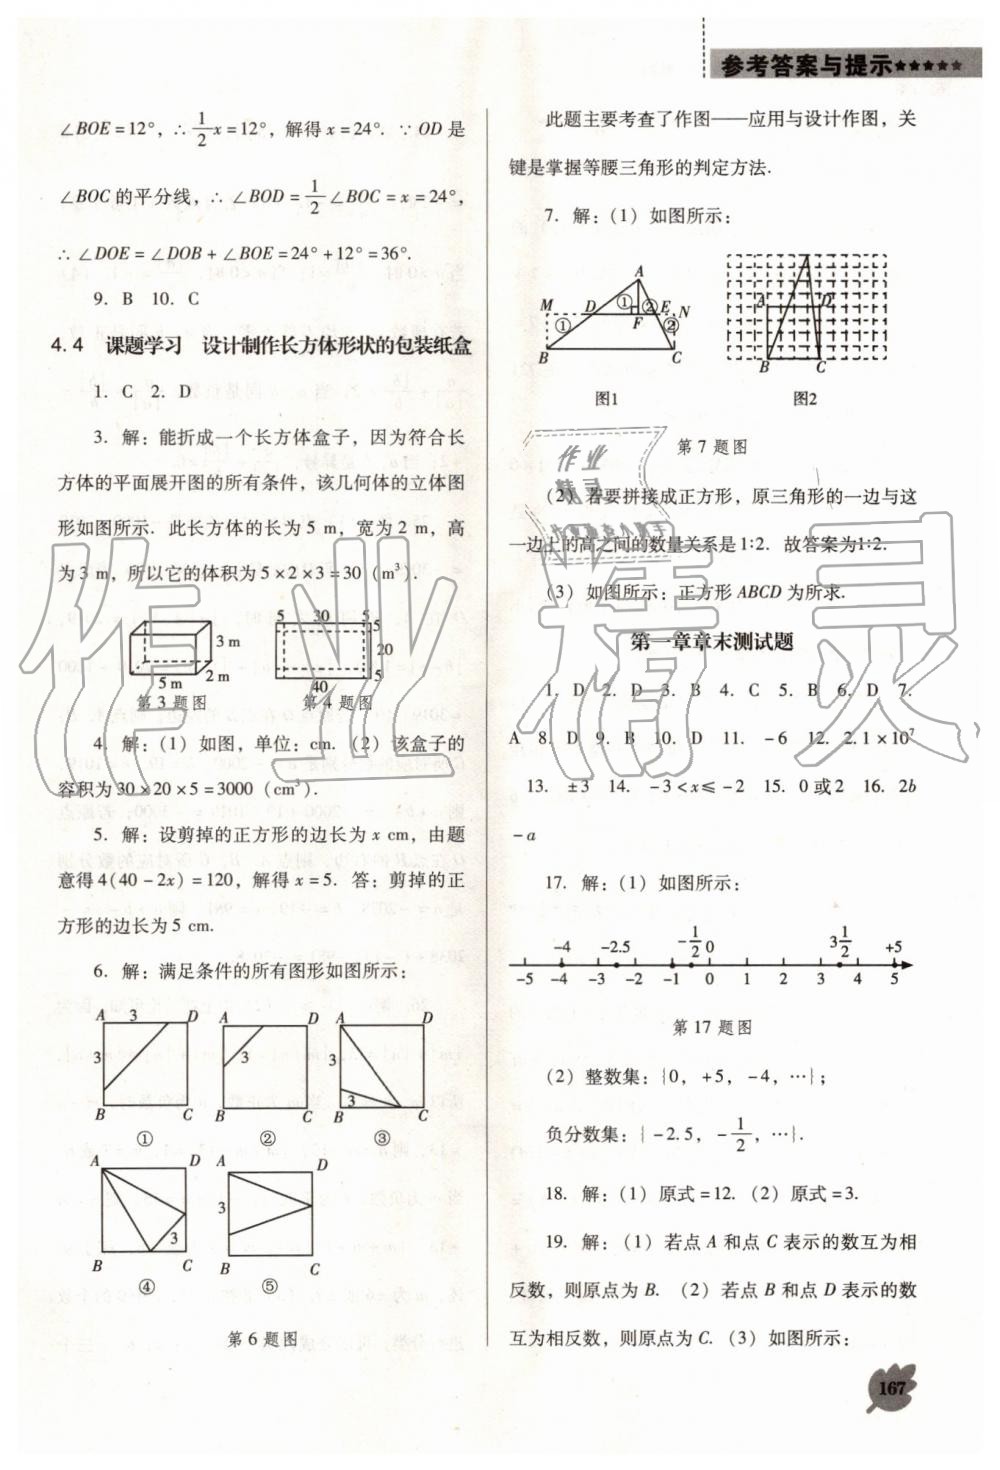 参考答案与提示★★★★★
∠BOE=12°, ∴ 1/2x=12°, 解得 x=24°. ∵ OD 是
∠BOC 的平分线, ∴ ∠BOD=1/2∠BOC=x=24°,
∴ ∠DOE=∠DOB+∠BOE=24°+12°=36°.
9. B 10. C
4.4 课题学习 设计制作长方体形状的包装纸盒
1. C 2. D
3. 解:能折成一个长方体盒子,因为符合长
方体的平面展开图的所有条件,该几何体的立体图
形如图所示. 此长方体的长为 5 m,宽为 2 m,高
为 3 m,所以它的体积为 5×2×3=30 (m³).
3 m
2 m
5 m
第 3 题图
5 30 5
5
20
5
40
第 4 题图
4. 解:(1) 如图,单位:cm. (2) 该盒子的
容积为 30×20×5=3000 (cm³).
5. 解:设剪掉的正方形的边长为 x cm,由题
意得 4(40-2x)=120,解得 x=5. 答:剪掉的正
方形的边长为 5 cm.
6. 解:满足条件的所有图形如图所示:
A 3 D A D A D
3 3 3
3
B C B C B C
① ② ③
A D A D
3 3
B C B C
④ ⑤
第 6 题图
此题主要考查了作图——应用与设计作图,关
键是掌握等腰三角形的判定方法.
7. 解:(1) 如图所示:
A
M D ① ② E N
① F ②
B C
图1
A D
B C
图2
第 7 题图
(2) 若要拼接成正方形,原三角形的一边与这
一边上的高之间的数量关系是1∶2. 故答案为1∶2.
(3) 如图所示:正方形 ABCD 为所求.
第一章章末测试题
1. D 2. D 3. B 4. C 5. B 6. D 7.
A 8. D 9. B 10. D 11. -6 12. 2.1×10⁷
13. ±3 14. -3<x≤-2 15. 0或2 16. 2b
-a
17. 解:(1) 如图所示:
-4 -2.5 -1/2 0 3 1/2 +5
-5 -4 -3 -2 -1 0 1 2 3 4 5
第 17 题图
(2) 整数集:{0, +5, -4, …};
负分数集:{-2.5, -1/2, …}.
18. 解:(1) 原式=12. (2) 原式=3.
19. 解:(1) 若点 A 和点 C 表示的数互为相
反数,则原点为 B. (2) 若点 B 和点 D 表示的数
互为相反数,则原点为 C. (3) 如图所示:
167
作业精灵